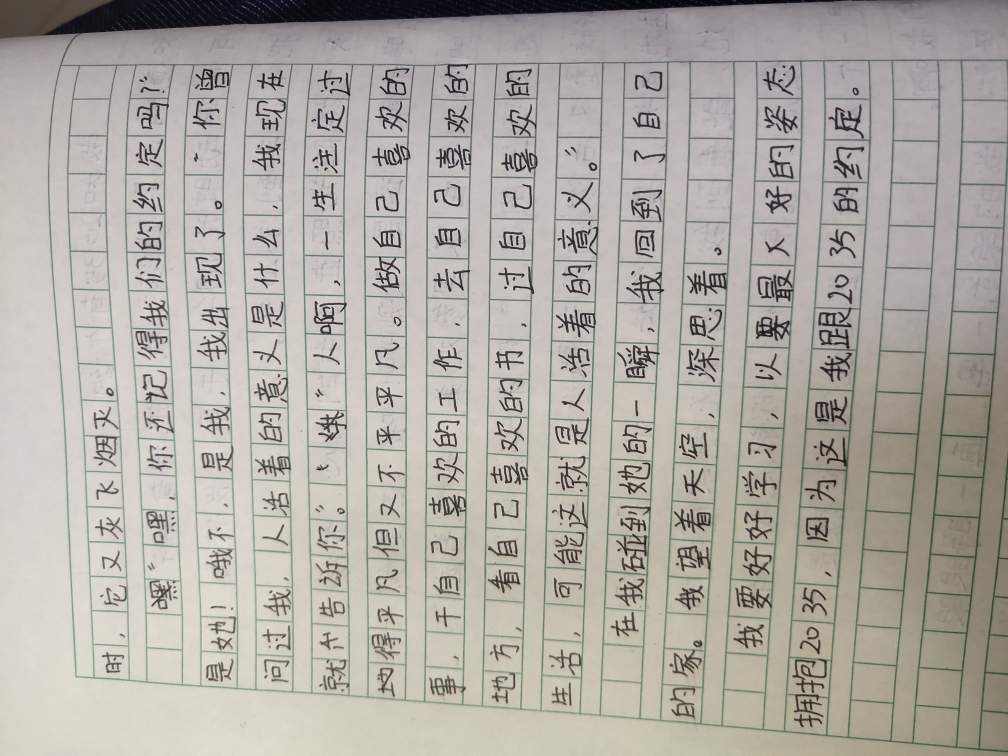 时，它又灰飞烟灭。
“嘿嘿，你还记得我们的约定吗？”
是她！哦不，是我，我出现了。“你曾
问过我，人活着的意义是什么，我现在
就告诉你。”“人啊，一生注定过
地得平凡但又不平平凡。做自己喜欢的
事，干自己喜欢的工作，去自己喜欢的
地方，看自己喜欢的书，过自己喜欢的
生活，可能这就是人活着的意义。”
在我碰到她的一瞬，我回到了自己
的家。我望着天空，深思着。
我要好好学习，以要最好的姿态
拥抱2035，因为这是我跟2035的约定。